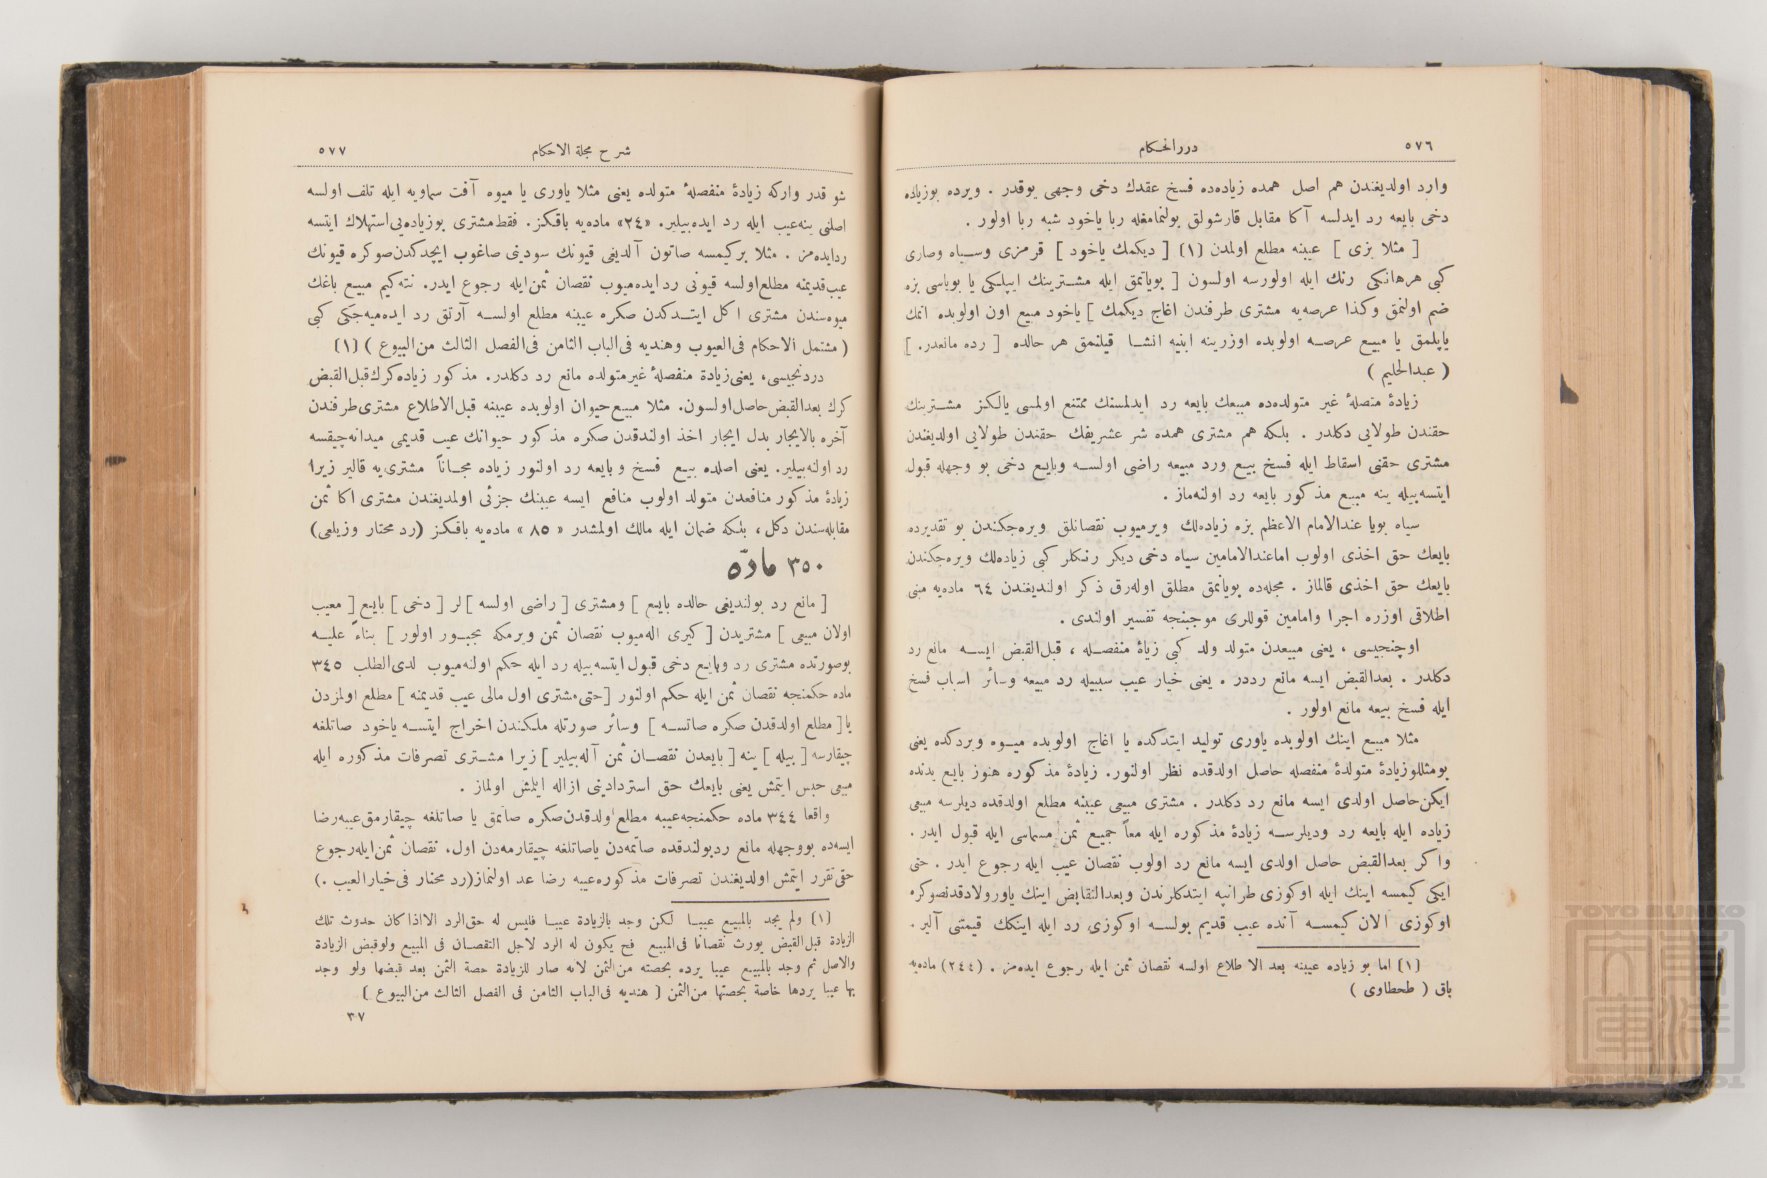 ٥٧٦
دررالحكام
وارد اولديغندن هم اصل همده زيادهده فسخ عقدك دخى وجهى يوقدر . ويرده بوزياده
دخى بايعه رد ايدلسه آكا مقابل قارشولق بولنمامغله ربا ياخود شبه ربا اولور .
[ مثلا بزى ] عيبنه مطلع اولمدن (١) [ ديكمك ياخود ] قرمزى وسياه وصارى
كبى هرهانكى رنك ايله اولورسه اولسون [ بوياتمق ايله مشترينك ايپلكى يا بوياسى بزه
ضم اولنمق وكذا عرصهيه مشترى طرفندن اغاج ديكمك ] ياخود مبيع اون اولوبده اتمك
ياپلمق يا مبيع عرصه اولوبده اوزرينه ابنيه انشا قيلنمق هر حالده [ رده مانعدر. ]
( عبدالحليم )
زيادۀ متصلۀ غير متولدهده مبيعك بايعه رد ايدلمسنك ممتنع اولمسى يالكز مشترينك
حقندن طولايى دكلدر . بلكه هم مشترى همده شر عشريفك حقندن طولايى اولديغندن
مشترى حقنى اسقاط ايله فسخ بيع ورد مبيعه راضى اولسه وبايع دخى بو وجهله قبول
ايتسهبيله ينه مبيع مذكور بايعه رد اولنهماز .
سياه بويا عندالامام الاعظم بزه زيادهلك ويرميوب نقصانلق ويرهجكندن بو تقديرده
بايعك حق اخذى اولوب اماعندالامامين سياه دخى ديكر رنكلر كبى زيادهلك ويرهجكندن
بايعك حق اخذى قالماز . مجلهده بويانمق مطلق اولهرق ذكر اولنديغندن ٦٤ مادهيه مبنى
اطلاقى اوزره اجرا وامامين قوللرى موجبنجه تفسير اولندى .
اوچنجيسى ، يعنى مبيعدن متولد ولد كبى زياۀ منفصله ، قبلالقبض ايسه مانع رد
دكلدر . بعدالقبض ايسه مانع رددر . يعنى خيار عيب سببيله رد مبيعه وسائر اسباب فسخ
ايله فسخ بيعه مانع اولور .
مثلا مبيع اينك اولوبده ياورى توليد ايتدكده يا اغاج اولوبده ميوه ويردكده يعنى
بومثللوزيادۀ متولدۀ منفصله حاصل اولدقده نظر اولنور. زيادۀ مذكوره هنوز بايع يدنده
ايكن حاصل اولدى ايسه مانع رد دكلدر . مشترى مبيعى عيبنه مطلع اولدقده ديلرسه مبيعى
زياده ايله بايعه رد وديلرسه زيادۀ مذكوره ايله معاً جميع ثمن مسماسى ايله قبول ايدر .
واكر بعدالقبض حاصل اولدى ايسه مانع رد اولوب نقصان عيب ايله رجوع ايدر . حتى
ايكى كيمسه اينك ايله اوكوزى طرانپه ايتدكلرندن وبعدالتقابض اينك ياورولادقدنصوكره
اوكوزى الان كيمسه آنده عيب قديم بولسه اوكوزى رد ايله اينكك قيمتنى آلير .
(١) اما بو زياده عيبنه بعد الاطلاع اولسه نقصان ثمن ايله رجوع ايدهمز . (٢٤٤) مادهيه
باق ( طحطاوى )
شرح مجلة الاحكام
٥٧٧
شو قدر واركه زيادۀ منفصلۀ متولده يعنى مثلا ياورى يا ميوه آفت سماويه ايله تلف اولسه
اصلنى ينهعيب ايله رد ايدهبيلير. «٢٤» مادهيه باقكز. فقط مشترى بوزيادهيى استهلاك ايتسه
ردايدهمز . مثلا بركيمسه صاتون آلديغى قيونك سودينى صاغوب ايچدكدن صوكره قيونك
عيبقديمنه مطلع اولسه قيونى رد ايدهميوب نقصان ثمن ايله رجوع ايدر. نتهكيم مبيع باغك
ميوهسندن مشترى اكل ايتدكدن صكره عيبنه مطلع اولسه آرتق رد ايدهميهجكى كبى
( مشتمل الاحكام فىالعيوب وهنديه فىالباب الثامن فىالفصل الثالث منالبيوع ) (١)
دردنجيسى، يعنى زيادة منفصلۀ غيرمتولده مانع رد دكلدر. مذكور زياده كرك قبلالقبض
كرك بعدالقبض حاصل اولسون. مثلا مبيع حيوان اولوبده عيبنه قبلالاطلاع مشترى طرفندن
آخره بالايجار بدل ايجار اخذ اولندقدن صكره مذكور حيوانك عيب قديمى ميدانهچيقسه
رد اولنهبيلير. يعنى اصلده بيع فسخ وبايعه رد اولنور زياده مجاناً مشترىيه قالير زيرا
زيادۀ مذكور منافعدن متولد اولوب منافع ايسه عينك جزئى اولمديغندن مشترى اكا ثمن
مقابلهسندن دكل، بلكه ضمان ايله مالك اولمشدر « ٨٥ » مادهيه باقكز (رد محتار وزيلعى)
٣٥٠ مادّه
[ مانع رد بولنديغى حالده بايع ] ومشترى [ راضى اولسه ] لر [ دخى ] بايع [ معيب
اولان مبيعى ] مشتريدن [ كيرى الهميوب نقصان ثمن ويرمكه مجبور اولور ] بناءً عليه
بوصورتده مشترى رد وبايع دخى قبول ايتسهبيله رد ايله حكم اولنهميوب لدىالطلب ٣٤٥
ماده حكمنجه نقصان ثمن ايله حكم اولنور [ حتى مشترى اول مالى عيب قديمنه ] مطلع اولمزدن
يا [ مطلع اولدقدن صكره صاتسه ] وسائر صورتله ملكندن اخراج ايتسه ياخود صاتلغه
چيقارسه [ بيله ] ينه [ بايعدن نقصان ثمن آلهبيلير ] زيرا مشترى تصرفات مذكوره ايله
مبيعى حبس ايتمش يعنى بايعك حق استردادينى ازاله ايتمش اولماز .
واقعا ٣٤٤ ماده حكمنجه عيبه مطلع اولدقدن صكره صاتمق يا صاتلغه چيقارمق عيبه رضا
ايسهده بووجهله مانع رد بولندقده صاتمهدن ياصاتلغه چيقارمهدن اول، نقصان ثمن ايله رجوع
حقى تقرر ايتمش اولديغندن تصرفات مذكوره عيبه رضا عد اولنماز (رد محتار فىخيارالعيب .)
(١) ولم يجد بالمبيع عيبا لكن وجد بالزيادة عيبا فليس له حقالرد الااذا كان حدوث تلك
الزيادة قبلالقبض يورث نقصانا فىالمبيع فح يكون له الرد لاجل النقصان فى المبيع ولوقبض الزيادة
والاصل ثم وجد بالمبيع عيبا يرده بحصته منالثمن لانه صار للزيادة حصة الثمن بعد قبضها ولو وجد
بها عيبا يردها خاصة بحصتها منالثمن ( هنديه فىالباب الثامن فى الفصل الثالث منالبيوع )
٣٧
TOYO BUNKO